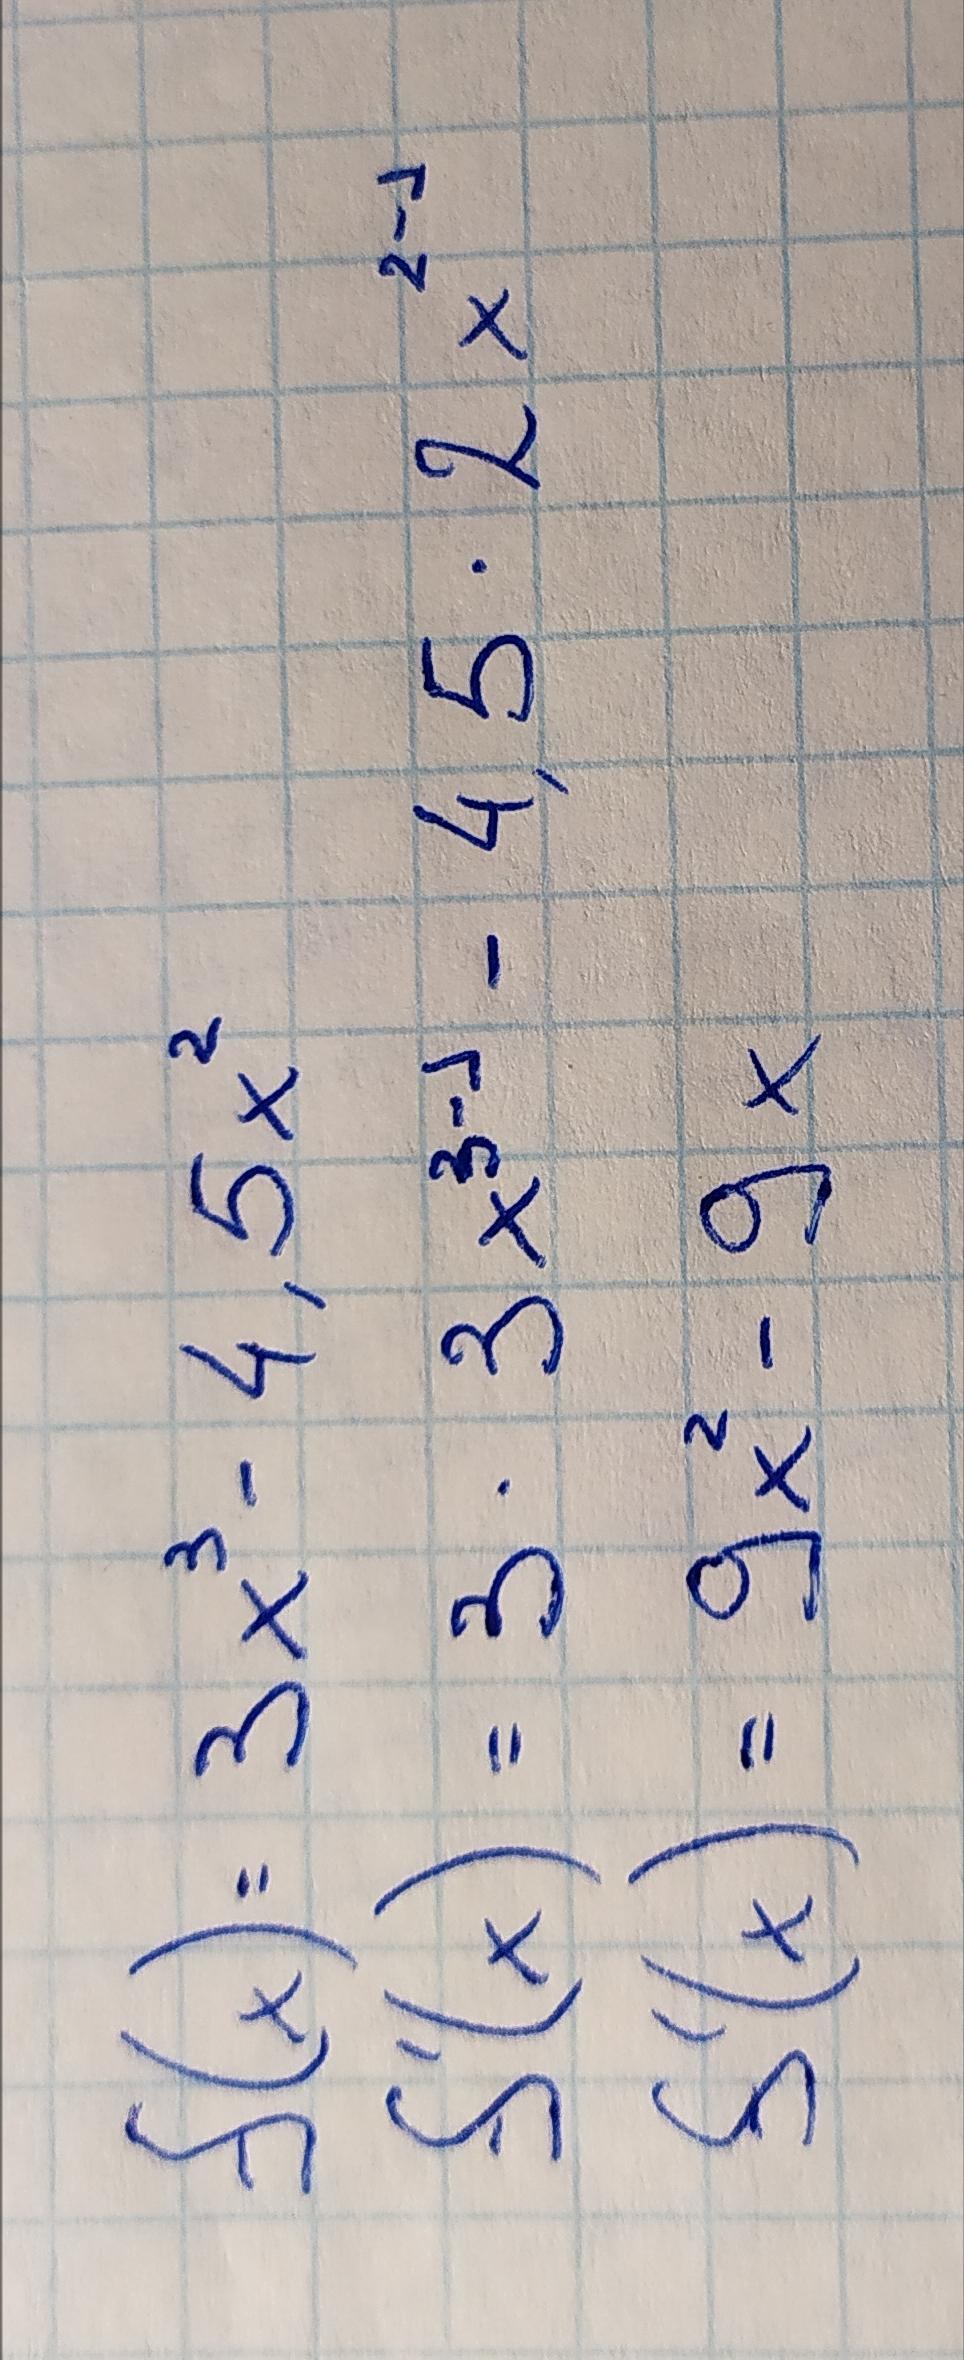 f(x) = 3x³ - 4,5x²
f'(x) = 3 · 3x³⁻¹ - 4,5 · 2x²⁻¹
f'(x) = 9x² - 9x